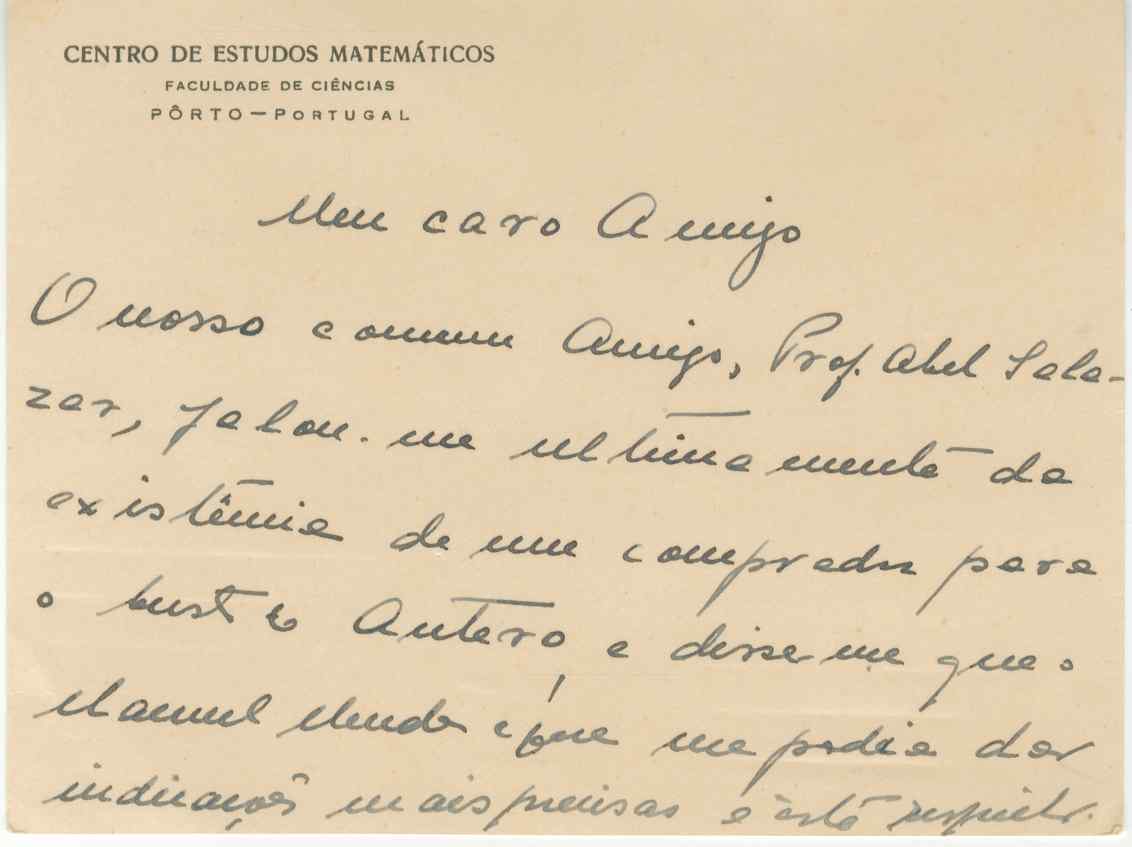 CENTRO DE ESTUDOS MATEMÁTICOS
FACULDADE DE CIÊNCIAS
PÔRTO — PORTUGAL
Meu caro Amigo
O nosso comum Amigo, Prof. Abel Sala-
zar, falou-me ultimamente da
existência de um comprador para
o busto de Antero, e disse-me que o
Manuel Mendes é que me podia dar
indicações mais precisas a êste respeito.